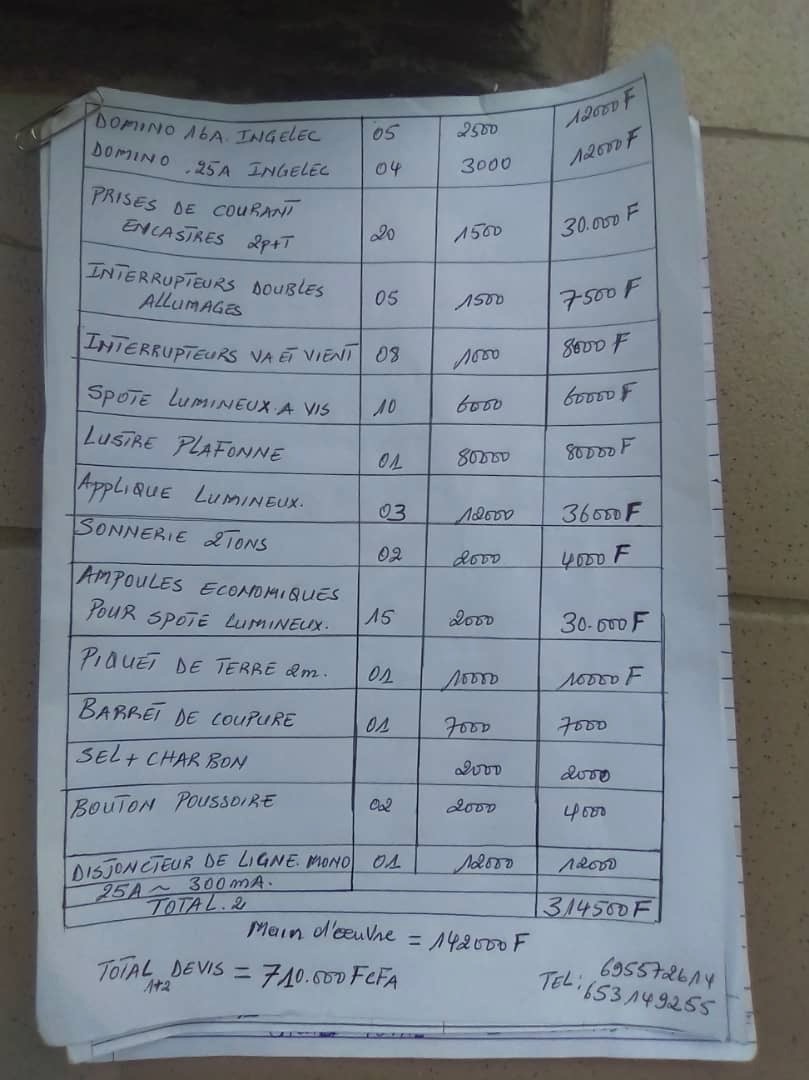 DOMINO 16A. INGELEC 05 2500 12000 F
DOMINO .25A INGELEC 04 3000 12000 F
PRISES DE COURANT
ENCASTRES 2P+T 20 1500 30.000 F
INTERRUPTEURS DOUBLES
ALLUMAGES 05 1500 7500 F
INTERRUPTEURS VA ET VIENT 08 1000 8000 F
SPOTE LUMINEUX. A VIS 10 6000 60000 F
LUSTRE PLAFONNE 01 80000 80000 F
APPLIQUE LUMINEUX. 03 12000 36000 F
SONNERIE 2TONS 02 2000 4000 F
AMPOULES ECONOMIQUES
POUR SPOTE LUMINEUX. 15 2000 30.000 F
PIQUET DE TERRE 2m. 01 10000 10000 F
BARRET DE COUPURE 01 7000 7000
SEL + CHARBON 2000 2000
BOUTON POUSSOIRE 02 2000 4000
DISJONCTEUR DE LIGNE. MONO 01 12000 12000
25A ~ 300mA.
TOTAL. 2 314500 F
Main d'oeuvre = 142000 F
TOTAL DEVIS = 710.000 FCFA
1+2
TEL: 695572614
653149255